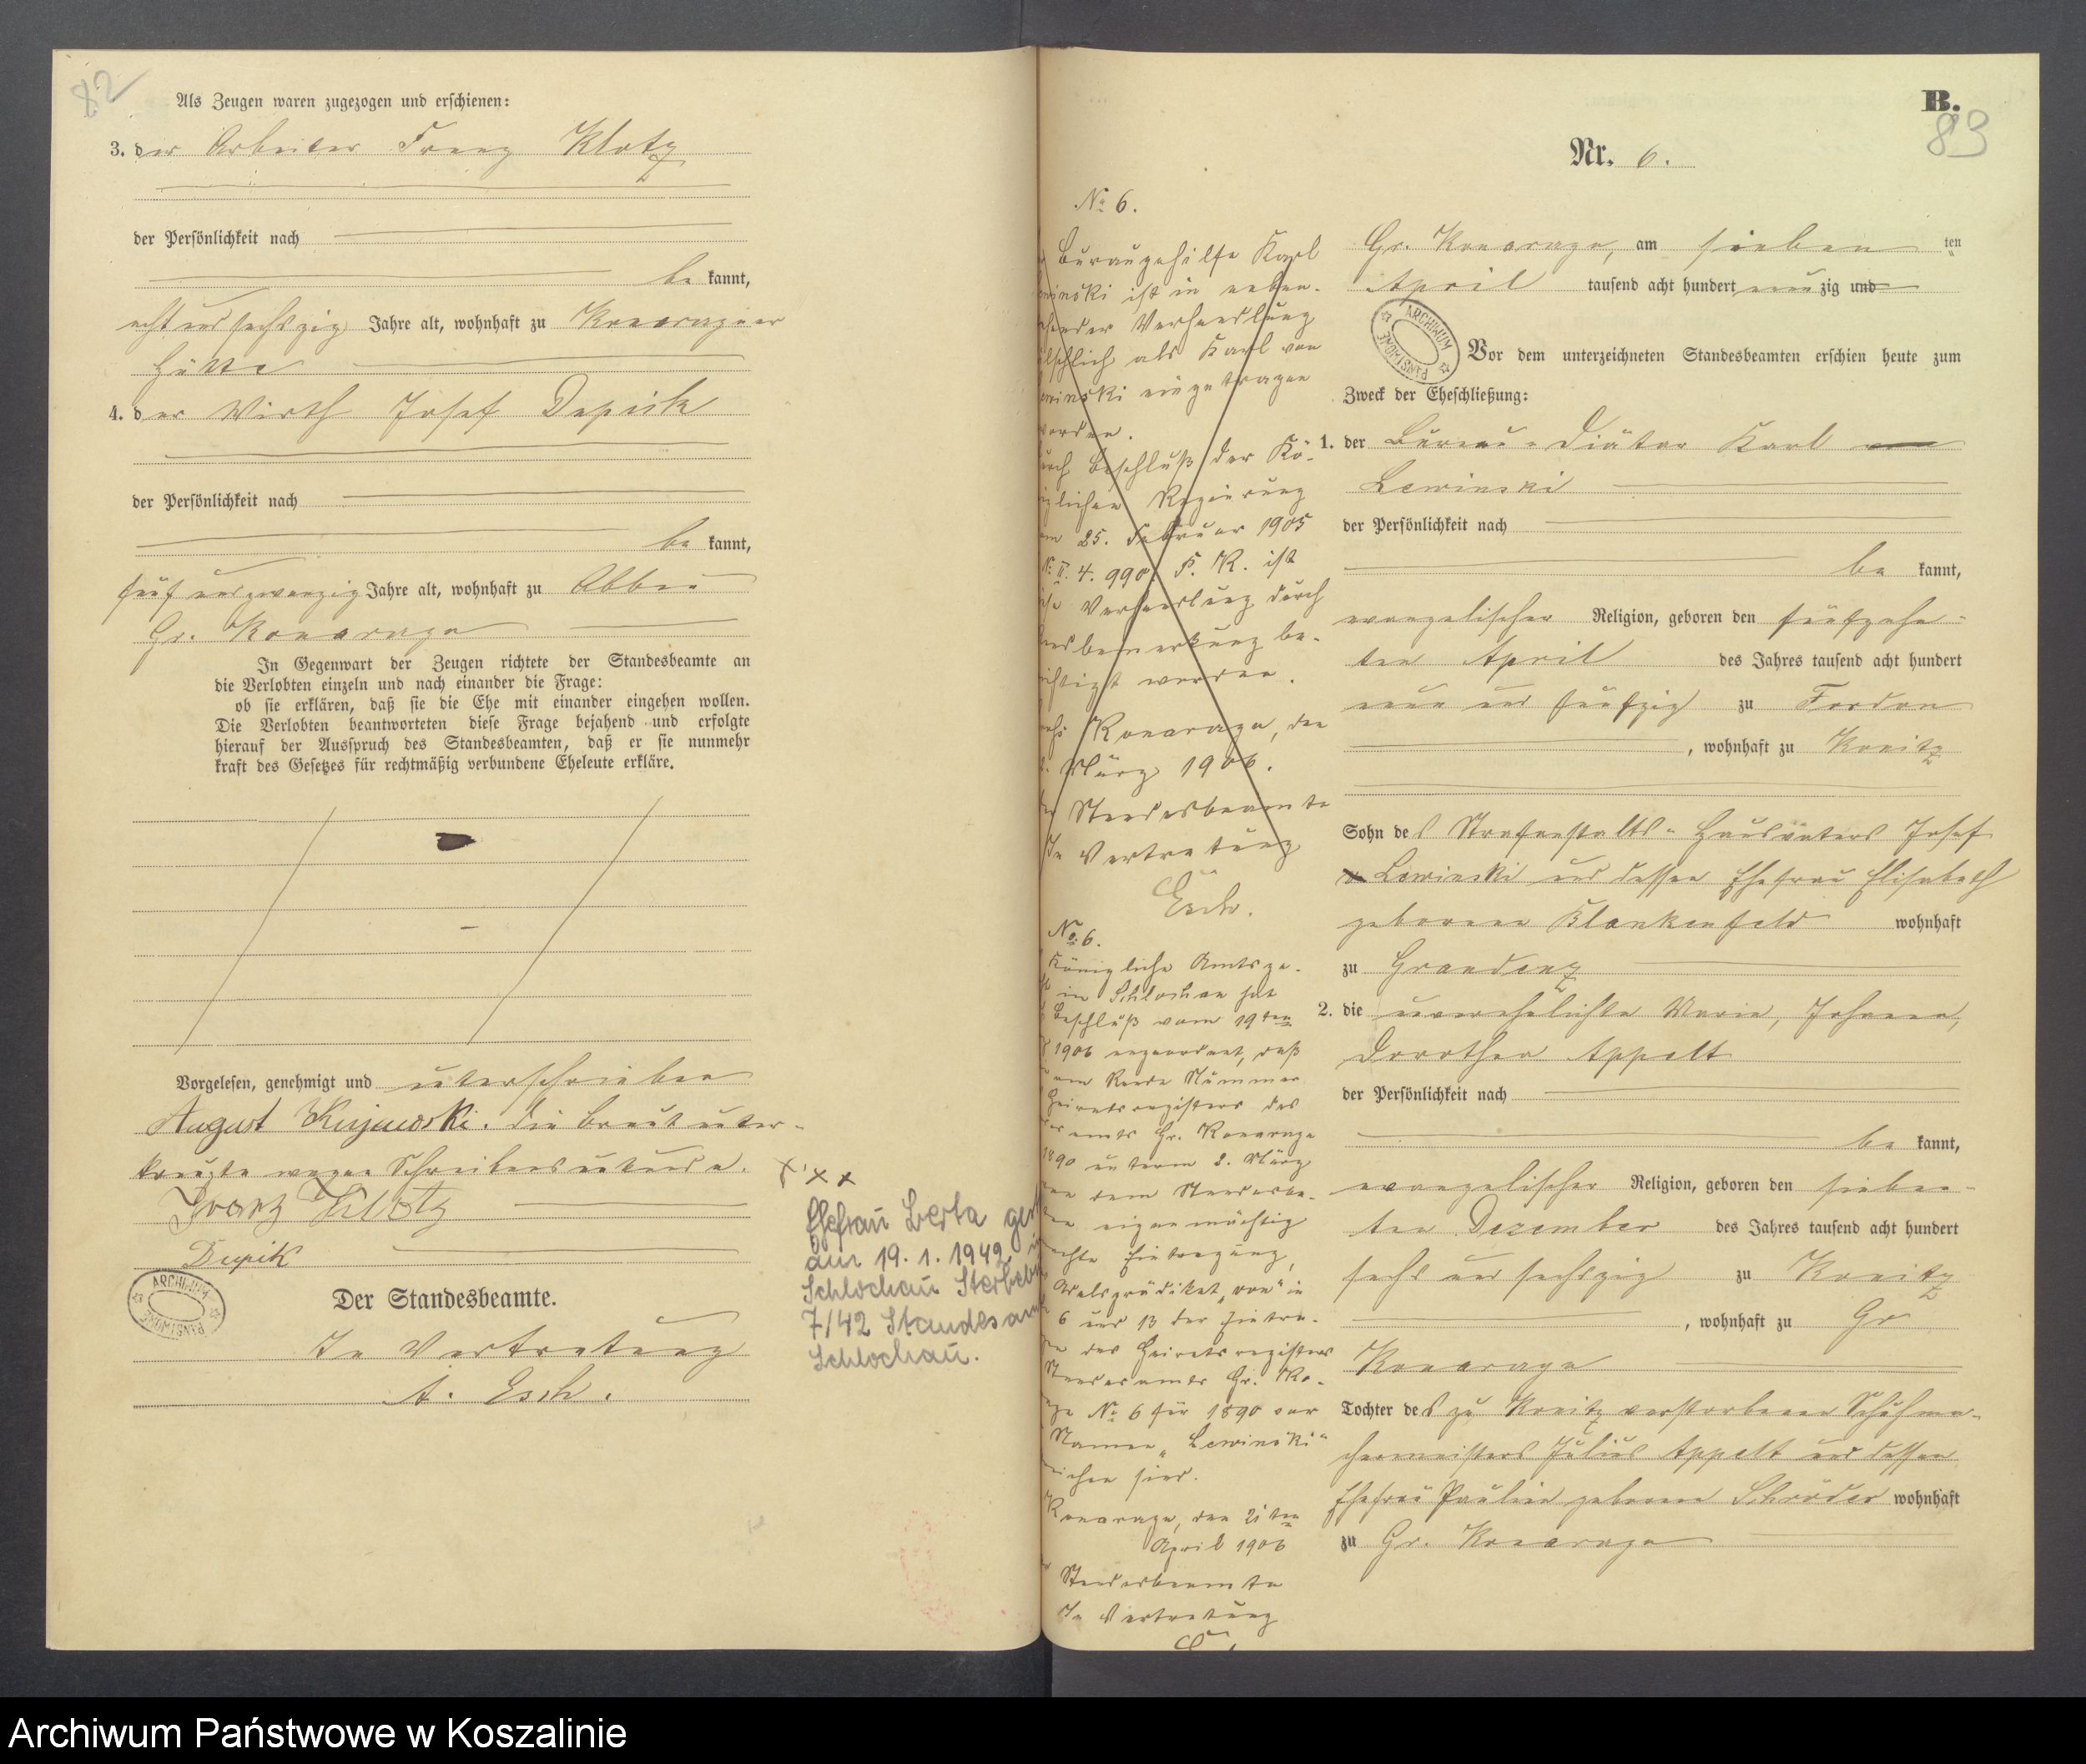 82
Als Zeugen waren zugezogen und erschienen:
3. der Arbeiter Franz Klotz
der Persönlichkeit nach
be kannt,
acht und sechszig Jahre alt, wohnhaft zu Konarzyner
Hütte
4. der Wirth Josef Depick
der Persönlichkeit nach
be kannt,
fünf und zwanzig Jahre alt, wohnhaft zu Abbau
Gr. Konarzyn
In Gegenwart der Zeugen richtete der Standesbeamte an
die Verlobten einzeln und nach einander die Frage:
ob sie erklären, daß sie die Ehe mit einander eingehen wollen.
Die Verlobten beantworteten diese Frage bejahend und erfolgte
hierauf der Ausspruch des Standesbeamten, daß er sie nunmehr
kraft des Gesetzes für rechtmäßig verbundene Eheleute erkläre.
Vorgelesen, genehmigt und unterschrieben
August Kujawski. die Braut unter-
kreuzte wegen Schreibensunkunde. + x x
Franz Klotz
Depik
ARCHIWUM PAŃSTWOWE
Der Standesbeamte.
In Vertretung
A. Esch.
Ehefrau Berta gest
am 19. 1. 1942 in
Schlochau Sterbeb
7/42 Standesam
Schlochau.
No 6.
Bureaugehilfe Karl
winski ist in neben-
stehender Verhandlung
fälschlich als Karl von
winski eingetragen
worden.
durch Beschluß der Kö-
niglichen Regierung
vom 25. Februar 1905
No II. 4. 990. F. R. ist
die Verhandlung durch
Randbemerkung be-
richtigt worden.
Konarzyn, den
März 1906.
Der Standesbeamte
In Vertretung
Esch.
No 6.
Königliche Amtsge-
in Schlochau hat
Beschluß vom 19ten
1906 angeordnet, daß
am Rande Nummer
Heiratsregisters des
amts Gr. Konarzyn
1890 unterm 2. März
von dem Standesbe-
eigenmächtig
machte Eintragung,
Adelsprädikat „von“ in
6 und 13 der Eintra-
des Heiratsregisters
Standesamts Gr. Ko-
No 6 für 1890 vor
Namen „Lewinski“
streichen sind.
Konarzyn, den 21ten
April 1906
Standesbeamte
In Vertretung
B.
83
Nr. 6.
Gr. Konarzyn, am sieben ten
April tausend acht hundert neunzig und
ARCHIWUM PAŃSTWOWE
Vor dem unterzeichneten Standesbeamten erschien heute zum
Zweck der Eheschließung:
1. der Bureau-Diätar Karl von
Lewinski
der Persönlichkeit nach
be kannt,
evangelischer Religion, geboren den fünfzehn-
ten April des Jahres tausend acht hundert
neun und fünfzig zu Fordon
, wohnhaft zu Konitz
Sohn des Strafanstalts-Hausvaters Josef
v Lewinski und dessen Ehefrau Elisabeth
geborenen Blankenfeld wohnhaft
zu Graudenz
2. die unverehelichte Marie, Johanna,
Dorothea Appelt
der Persönlichkeit nach
be kannt,
evangelischer Religion, geboren den sieben-
ten Dezember des Jahres tausend acht hundert
sechs und sechszig zu Konitz
, wohnhaft zu Gr
Konarzyn
Tochter des zu Konitz verstorbenen Schuhma-
chermeisters Julius Appelt und dessen
Ehefrau Pauline geborene Schröder wohnhaft
zu Gr. Konarzyn
Archiwum Państwowe w Koszalinie